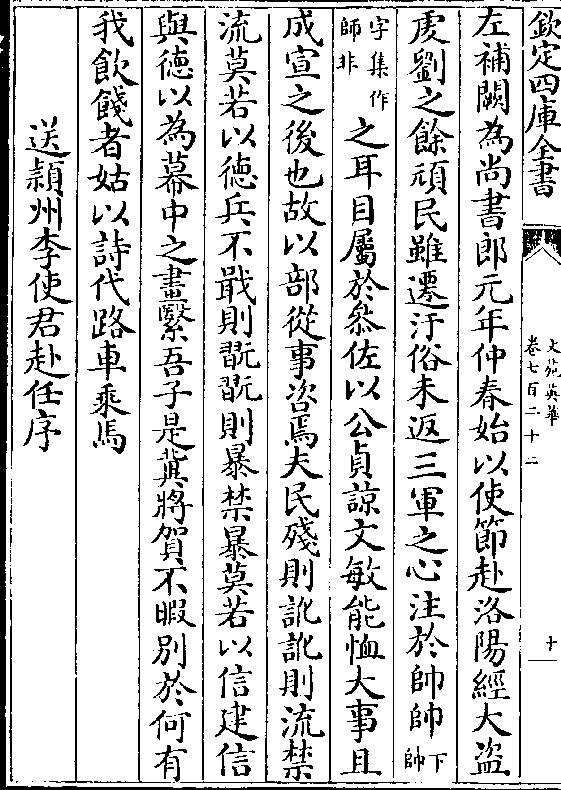 欽定四庫全書
文苑英華
卷七百二十二
十
左補闕為尚書郎元年仲春始以使節赴洛陽經大盗
虔劉之餘頑民雖遷汙俗未返三軍之心注於帥帥下帥
字集作師非之耳目屬於叅佐以公貞諒文敏能恤大事且
成宣之後也故以部從事咨焉夫民殘則訛訛則流禁
流莫若以徳兵不戢則翫翫則暴禁暴莫若以信建信
與徳以為幕中之畫繄吾子是冀將賀不暇别於何有
我飲餞者姑以詩代路車乘馬
送潁州李使君赴任序